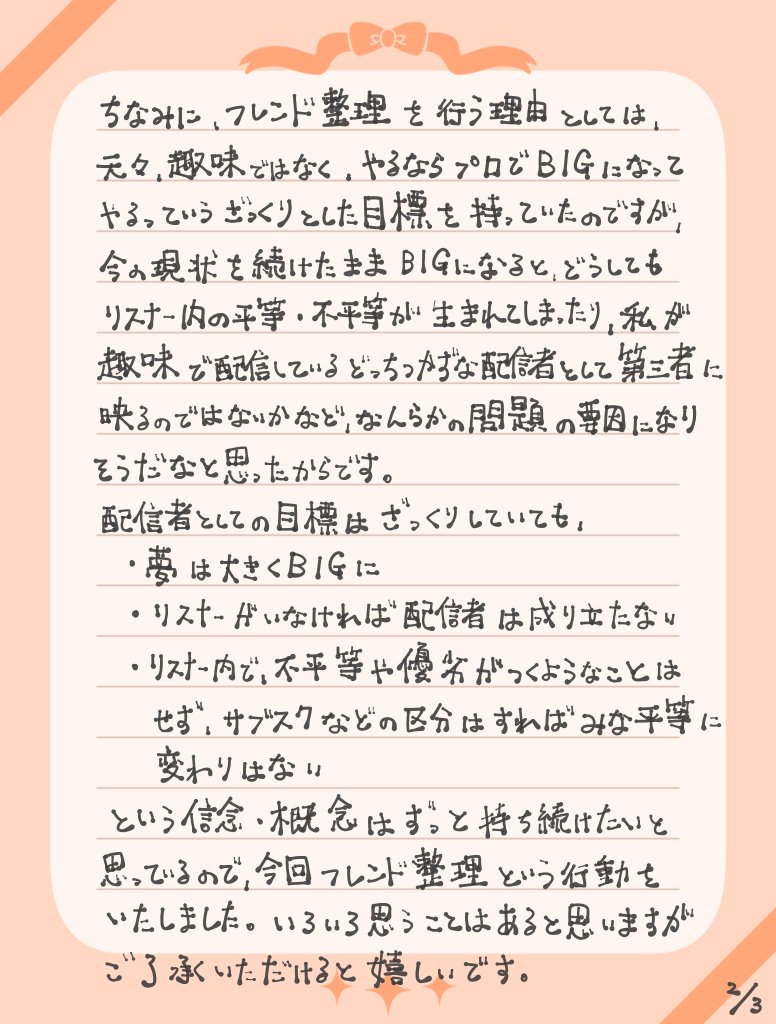 ちなみに、フレンド整理を行う理由としては、
元々、趣味ではなく、やるならプロでBIGになって
やるっていうざっくりとした目標を持っていたのですが、
今の現状を続けたままBIGになると、どうしても
リスナー内の平等・不平等が生まれてしまったり、私が
趣味で配信しているどっちつかずな配信者として第三者に
映るのではないかなど、なんらかの問題の要因になり
そうだなと思ったからです。
配信者としての目標はざっくりしていても、
・夢は大きくBIGに
・リスナーがいなければ配信者は成り立たない
・リスナー内で、不平等や優劣がつくようなことは
せず、サブスクなどの区分はすればみな平等に
変わりはない
という信念・概念はずっと持ち続けたいと
思っているので、今回フレンド整理という行動を
いたしました。いろいろ思うことはあると思いますが
ご了承いただけると嬉しいです。
2/3